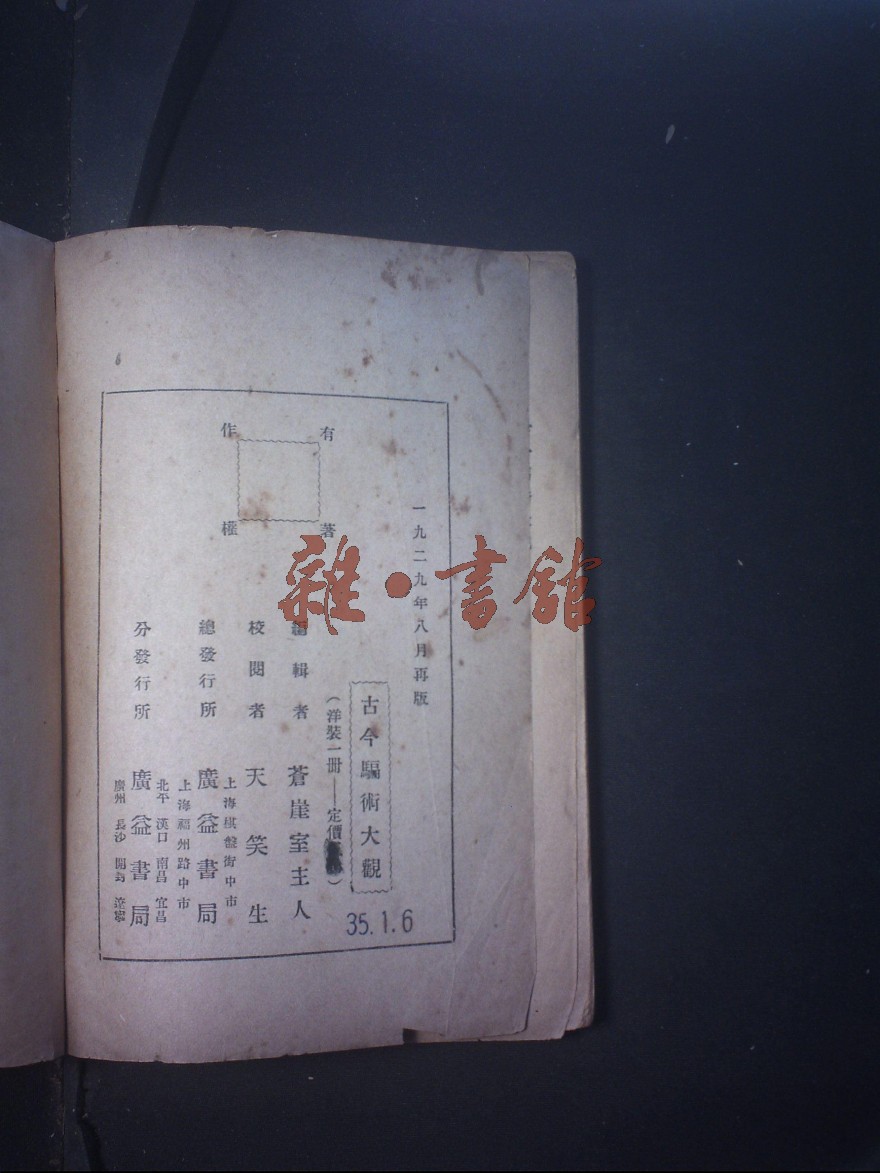 一九二九年八月再版
古今騙術大觀
（洋裝一册——定價）
35.1.6
有著
作權
編輯者 蒼崖室主人
校閱者 天笑生
總發行所 廣益書局
上海棋盤街中市
上海福州路中市
分發行所 廣益書局
北平 漢口 南昌 宜昌
廣州 長沙 開封 遼寧
雜·書館